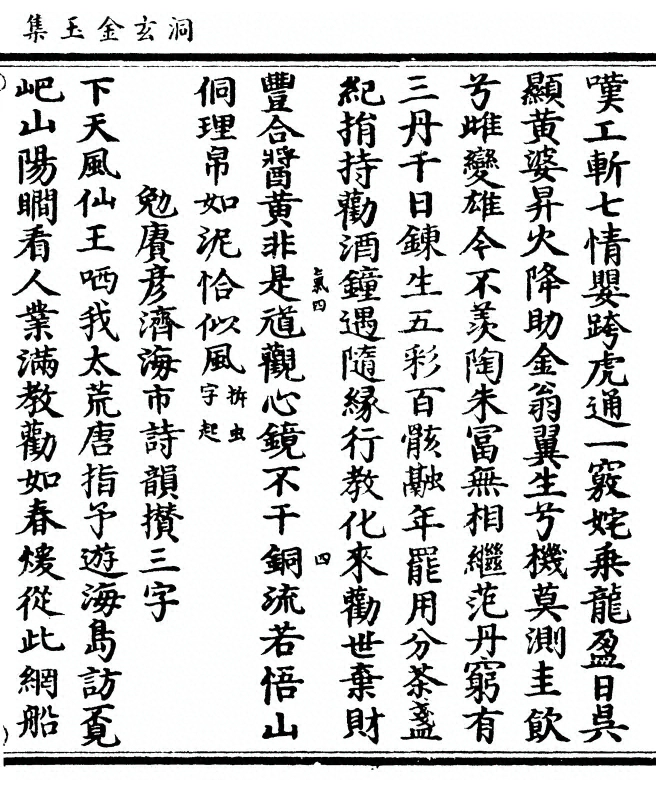 洞玄金玉集
嘆工斬七情嬰跨虎通一竅姹乗龍盈日呉
顯黄婆昇火降助金翁翼生兮機莫測圭飲
兮雌變雄今不羨陶朱冨無相繼范丹窮有
三丹千日鍊生五彩百骸融年罷用分茶盞
紀捐持勸酒鐘遇隨緣行教化來勸世棄財
豐合醬黄非是道觀心鏡不干銅流若悟山
上氣四
四
侗理帛如泥恰似風拆虫字起
勉賡彦濟海市詩韻攅三字
下天風仙王哂我太荒唐指予遊海島訪覔
岊山陽瞯看人業滿教勸如春煖從此網船